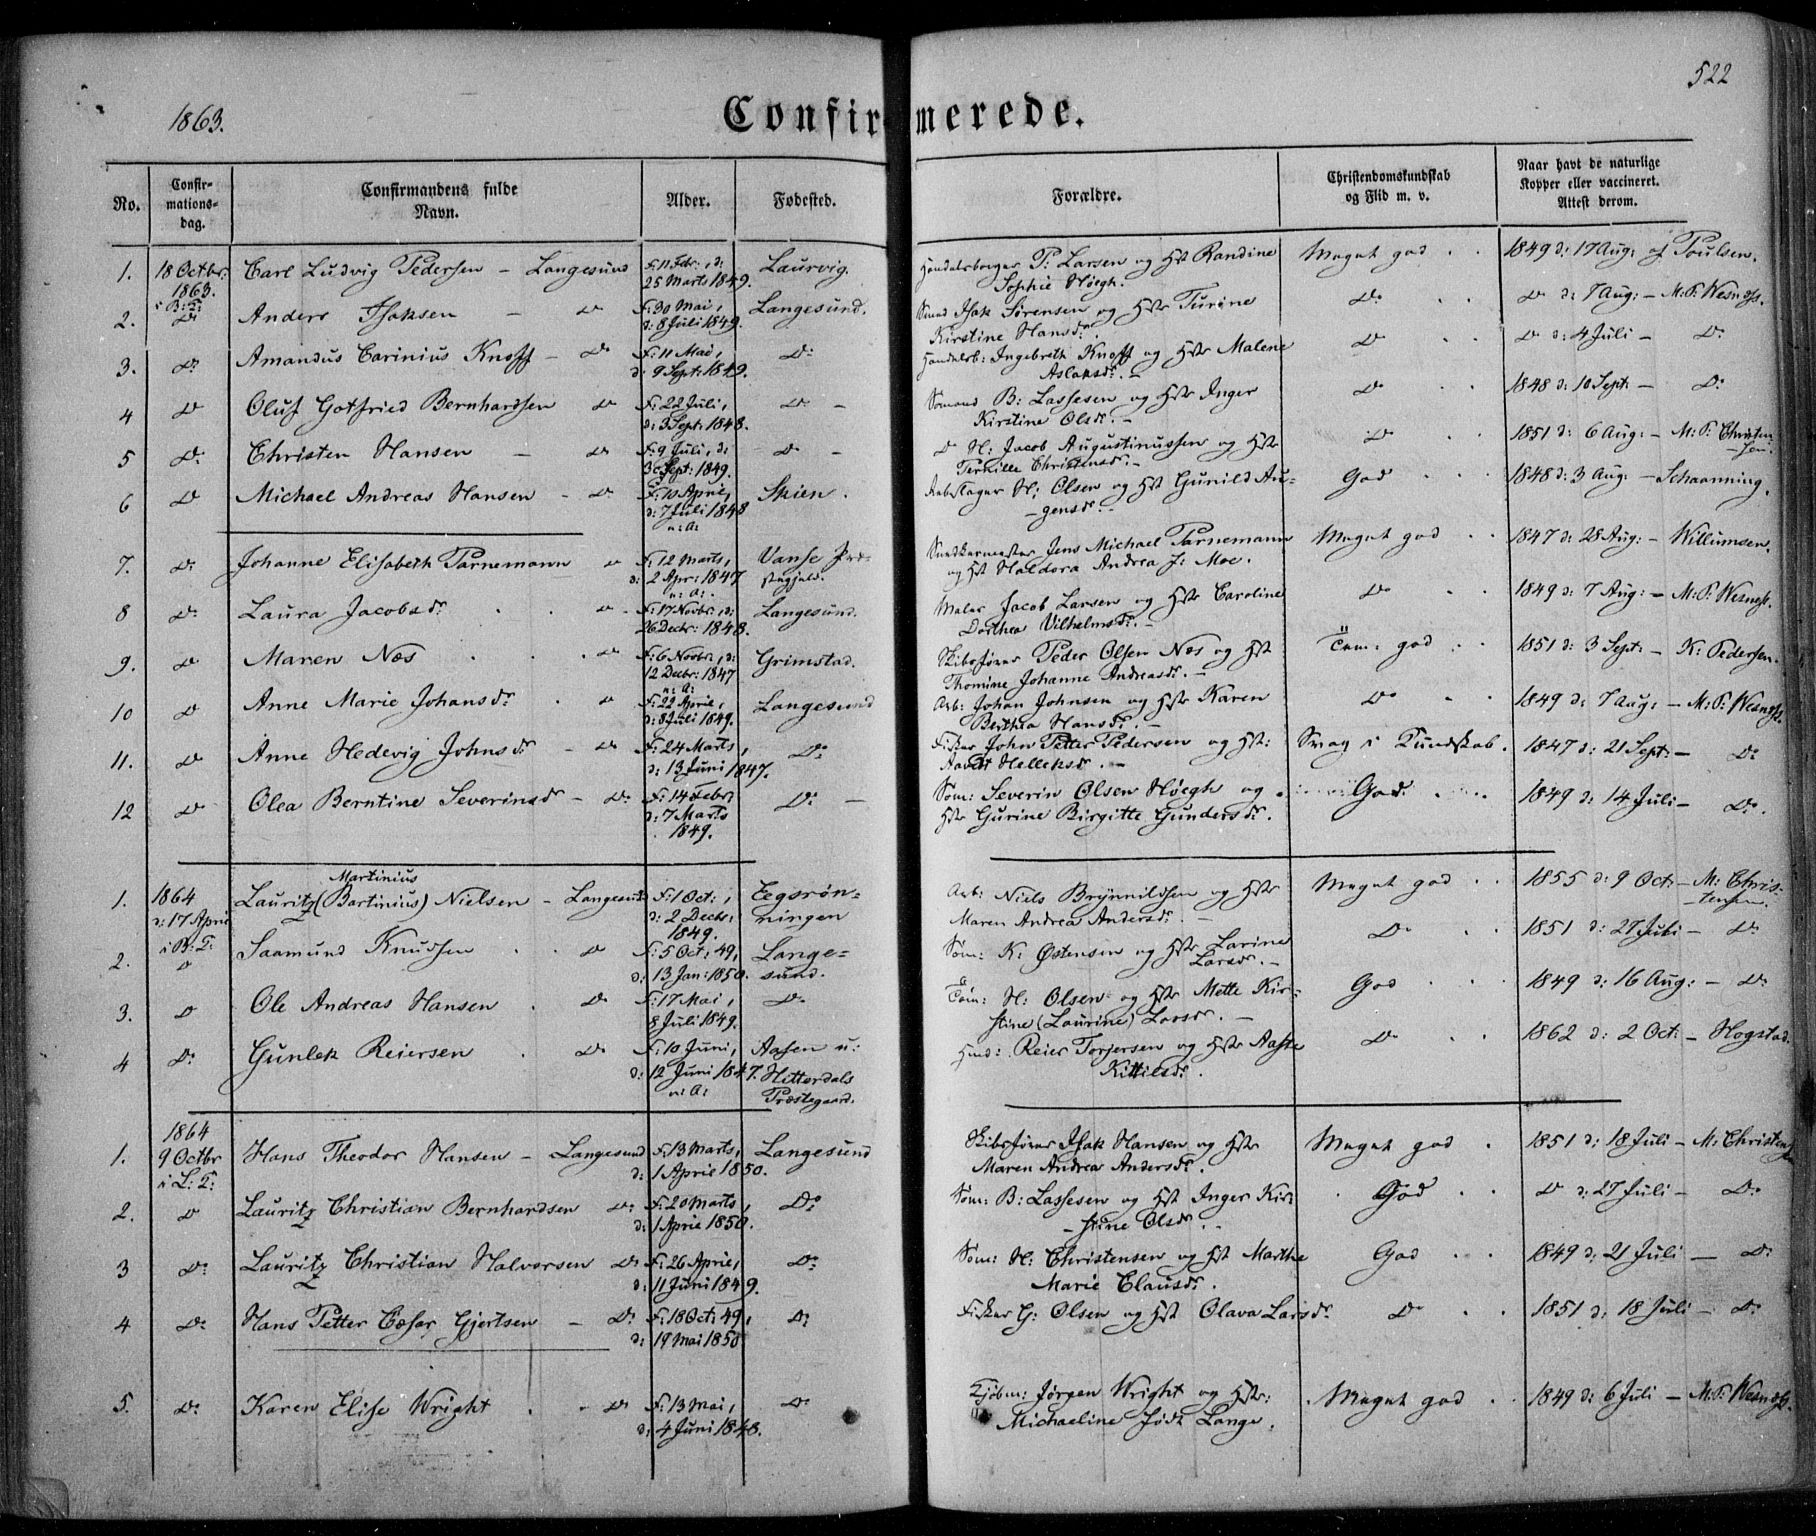 522
1863.
Confirmerede.
No. Confirmationsdag. Confirmandens fulde Navn. Alder. Fødested. Forældre. Christendomskundskab og Flid m. v. Naar havt de naturlige Kopper eller vaccineret. Attest derom.
1. 18 Octbr: 1863. i B: T: Carl Ludvig Pedersen – Langesund F: 11 Febr:, d: 25 Marts 1849. Laurvig. Handelsborger P: Larsen og Hst Randine Sophie Høegh. Meget god 1849 d: 17 Aug: af Poulsen.
2. Do Anders Isaksen – Do F: 30 Mai, d: 8 Juli 1849. Langesund. Smed Isak Sørensen og Hstr Turine Kirstine Hansdr. Do Do d: 7 Aug: – M: P: Wesnæss.
3. Do: Amandus Carinius Knoff – Do F: 11 Mai, d: 9 Sept: 1849. Do: Handelsb: Ingebreth Knoff og Hstr Malene Aslaksdr. – Do Do d: 4 Juli – Do:
4 Do Oluf Gotfried Bernhardsen Do F: 22 Juli, d: 3 Sept: 1848. Do – Sømand B: Lassesen og Hstr Inger Kirstine Olsdr. – Do 1848 d: 10 Sept: – Do:
5 Do: Christen Hansen – Do F: 9 Juli, d: 30 Sept: 1849. Do – Do H: Jacob Augustinussen og Hstr Pernille Christensdr. – Do 1851 d: 6 Aug: – M: P: Christensen.
6 Do Michael Andreas Hansen – Do F: 10 April, d: 7 Juli 1848 n: A: Skien. H: Olsen og Hst Gunild Augensdr. – God 1848 d: 3 Aug: – Schaanning.
7. Do: Johanne Elisabeth Parnemann Do F: 12 Marts, d: 2 Apr: 1847 n: A: Vanse Præstegjeld. Jens Michael Parnemann og Hst Haldora Andrea f: Moe. Meget god 1847 d: 28 Aug: – Willumsen.
8 Do: Laura Jacobsdr Do – F: 17 Novbr:, d: 26 Decbr: 1848. Langesund. Maler Jacob Larsen og Hstr Caroline Dorthea Vilhelmsdr. – Do 1849 d: 7 Aug: – M: P: Wesnæss.
9. Do Maren Næs Do F: 6 Novbr:, d: 12 Decbr: 1847 n: A: Grimstad. Skibsfører Peder Olsen Næs og Hst Thomine Johanne Andreasdr. – Tem: god 1851 d: 3 Sept: – K: Pedersen.
10 Do Anne Marie Johansdr Do F: 22 April, d: 8 Juli 1849. Langesund Arb: Johan Johnsen og Hstr Karen Berthea Hansdr. – Do 1849 d: 7 Aug: – M: P: Wesnæss.
11. Do Anne Hedevig Johnsdr – Do F: 24 Marts, d: 13 Juni 1847. Do: Fisker John Petter Pedersen og Hst: Helleksdr. – Svag i Kundskab. 1847 d: 21 Sept: – Do:
12 Do Olea Berntine Severinsdr – Do: F: 14 Febr: d: 7 Marts 1849. Do: – Søm: Severin Olsen Høegh og Hstr Gurine Birgitte Gundersdr. God. 1849 d: 14 Juli – Do.
1. 1864 d: 17 April i B: T: Lauritz (Bartinius) Martinius Nielsen – Langesund F: 1 Oct:, d: 2 Decbr: 1849. Eegsrønningen Arb: Niels Brynnildsen og Hstr Maren Andrea Andersdr. – Meget god 1855 d: 9 Oct: – M: Christensen.
2. Do Saamund Knudsen Do F: 5 Oct: 49, d: 13 Jan: 1850. Langesund. Søm: K: Østensen og Hstr Larine Larsdr. – Do 1851 d: 27 Juli – Do
3. Do Ole Andreas Hansen Do F: 17 Mai, 8 Juli 1849. Do: Tøm: H: Olsen og Hstr Mette Kirstine (Laurine) Larsdr. – God 1849 d: 16 Aug: – Do:
4 Do: Gunlek Reiersen Do: F: 10 Juni, d: 12 Juni 1847. n: A: Aasen u: Hitterdals Præstegaard. Huusd: Reier Torjersen og Hstr Aaste Kittilsdr. Do 1862 d: 2 Oct: – Hogstad.
1. 1864 9 Octbr i L: T: Hans Theodor Hansen – Langesund F: 13 Marts, d: 1 April 1850. Langesund Skibsfører Isak Hansen og Hstr Maren Andrea Andersdr. Meget god 1851 d: 18 Juli – M: Christensen
2. Do Lauritz Christian Bernhardsen Do: F: 20 Marts, d: 1 April 1850. Do: Søm: B: Lassesen og Hst Inger Kirstine Olsdr. – God Do d: 27 Juli – Do:
3 Do: Lauritz Christian Halvorsen Do: F: 26 April, d: 11 Juni 1849. Do: Søm: H: Christensen og Hst Marthe Marie Clausdr. God 1849 d: 21 Juli – Do:
4 Do: Hans Petter Cæsar Gjertsen – Do: F: 18 Oct: 49, d: 19 Mai 1850 Do: Fisker G: Olsen og Hst Olava Larsdr Do 1851 d: 18 Juli – Do:
5. Do: Karen Elise Wright – Do F: 13 Mai, d: 4 Juni 1848. Do Kjøbm: Jørgen Wright og Hstr: Michaeline født Lange. Meget god 1849 d: 6 Juli – M: P: Wesnæss.